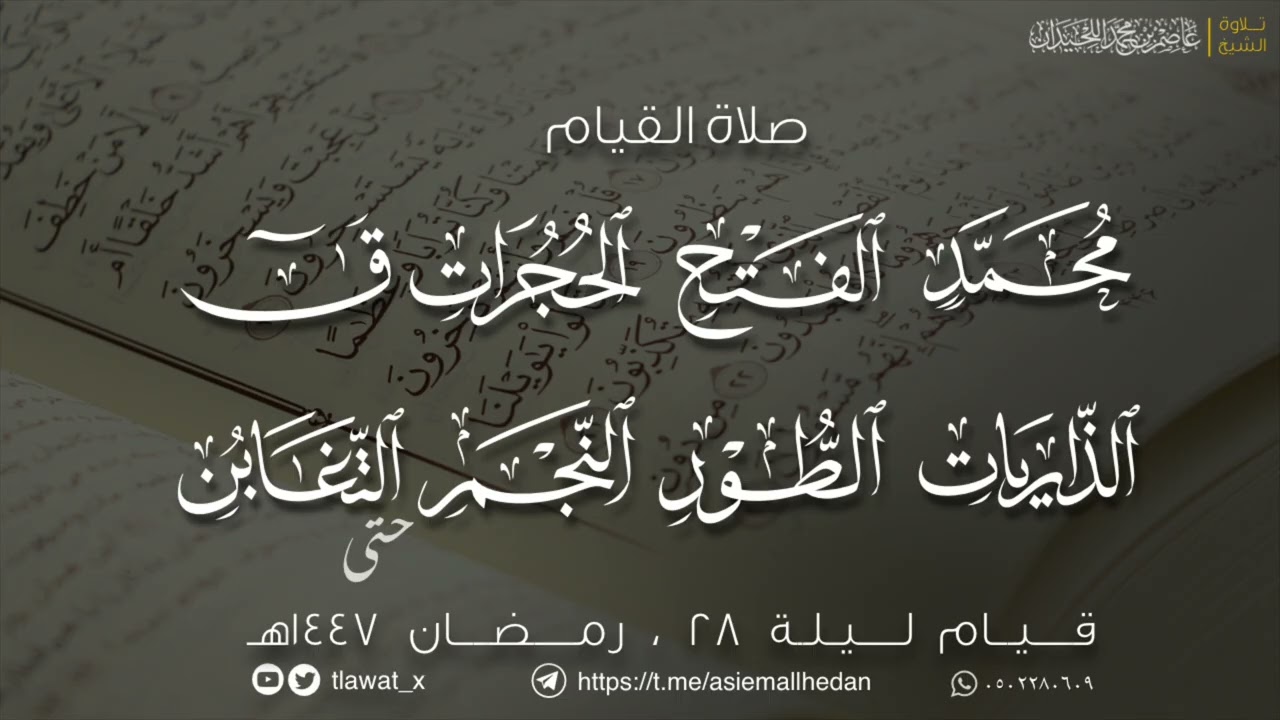 تلاوة الشيخ
عاصم بن محمد اللحيدان
صلاة القيام
مُحَمَّدٍ ٱلْفَتْحِ ٱلْحُجُرَاتِ قٓ
ٱلذَّارِيَاتِ ٱلطُّورِ ٱلنَّجْمِ حتى ٱلتَّغَابُنِ
قيام ليلة ٢٨ ، رمضان ١٤٤٧هـ
tlawat_x
https://t.me/asiemallhedan
٠٥٠٢٢٨٠٦٠٩